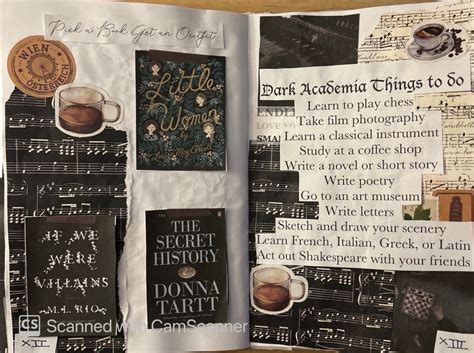 Pick a Book Get an Outfit
WIEN
ÖSTERREICH
Little
Women
IF WE
WERE
VILLAINS
M.L. RIO
THE
SECRET
HISTORY
DONNA
TARTT
CS Scanned with CamScanner
XII
Dark Academia Things to do
Learn to play chess
Take film photography
Learn a classical instrument
Study at a coffee shop
Write a novel or short story
Write poetry
Go to an art museum
Write letters
Sketch and draw your scenery
Learn French, Italian, Greek, or Latin
Act out Shakespeare with your friends
XIII